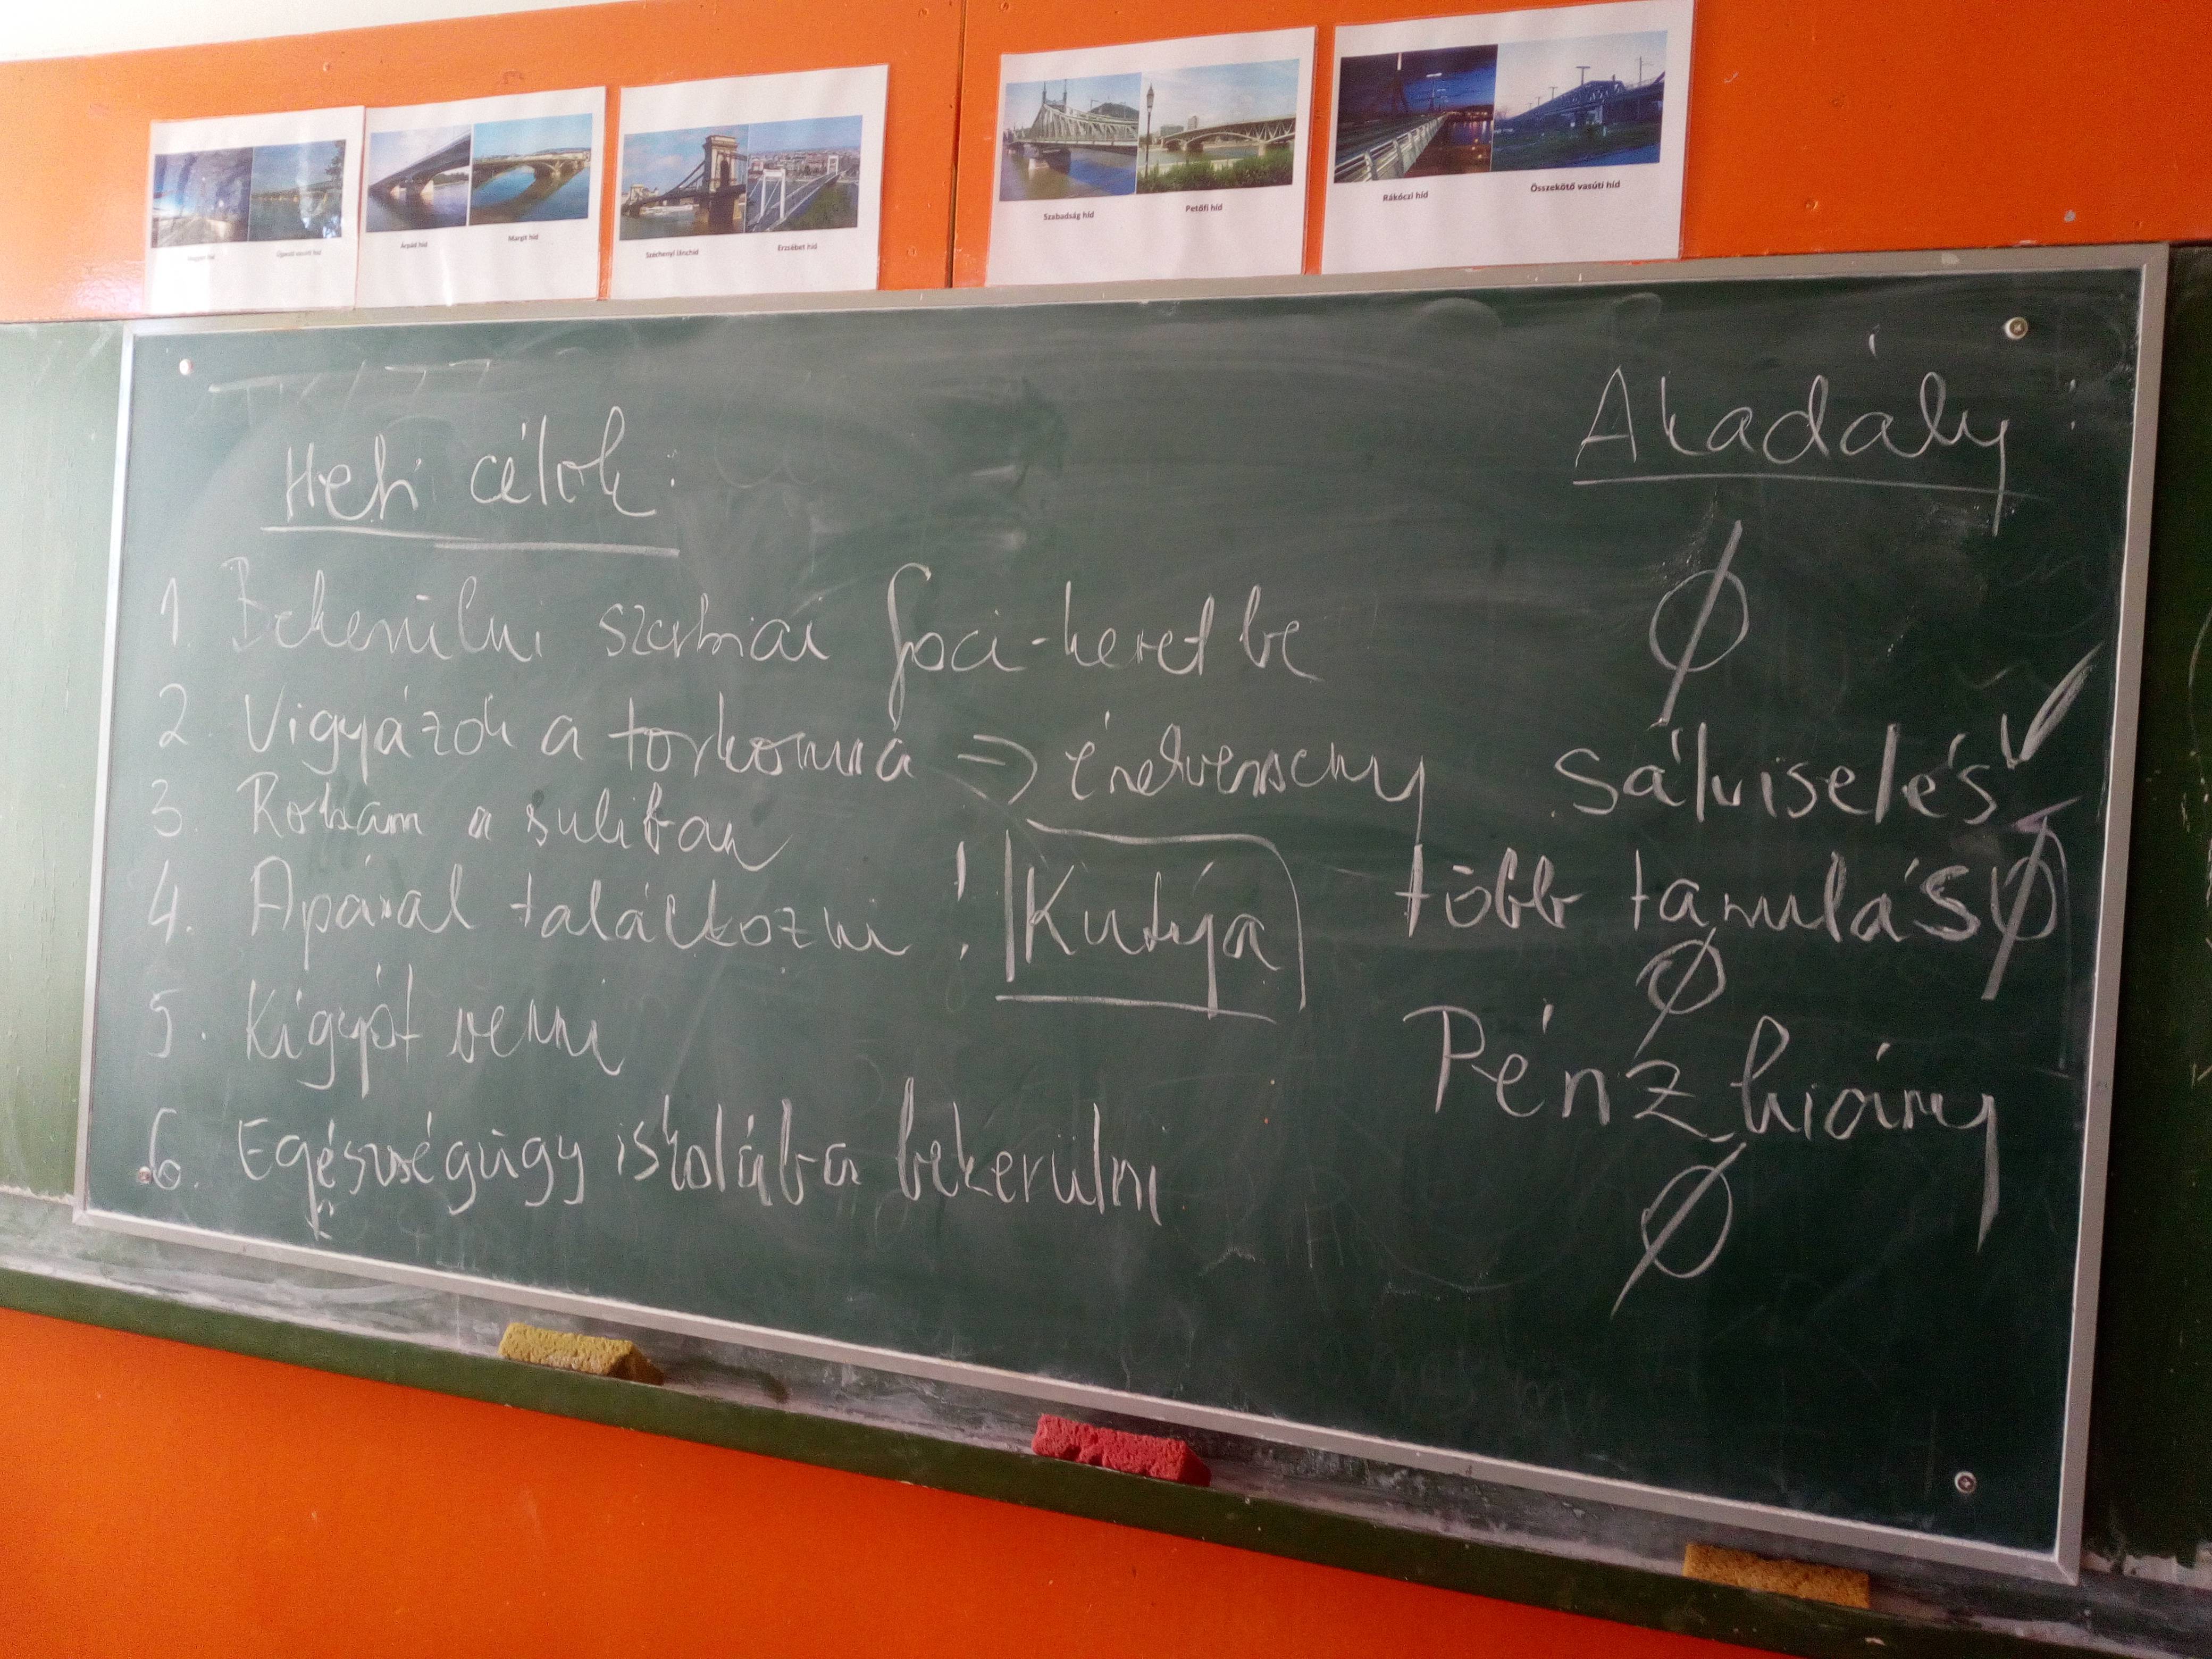 Árpád híd
Margit híd
Széchenyi lánchíd
Erzsébet híd
Szabadság híd
Petőfi híd
Rákóczi híd
Összekötő vasúti híd
Heti célok:
Akadály
1. Bekerülni szerbiai foci-keretbe
Ø
2. Vigyázok a torkomra => énekverseny
Sálviselés ✓
3. a suliban
több tanulás Ø
4. Apával találkozni! Kutya
Ø
5. Kígyót venni
Pénzhiány
6. Egészségügy iskolába bekerülni
Ø